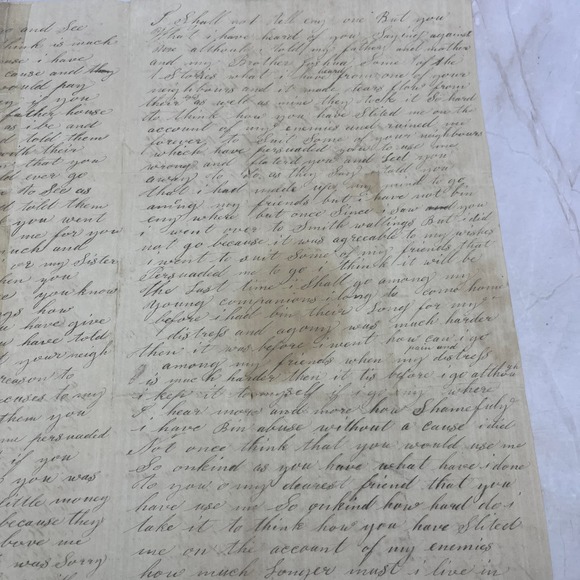 ro and See
think is much
use i have
cause and they
would pay
if you
father house
as i be and
d told them
with their
e that you
ld ever go
to See as
d told them
k you went
me for you
much and
or my Sister
hen you
e you know
ngs how
u have give
u have told
t your neigh
reason to
ccuses to say
them you
me persuaded
if you
s you was
little money
because they
above me
was Sorry
I Shall not tell eny one But you
What i have heard of you Saying against
me although i told my father and mother
and my Brother Joshua Some of the
Stories what i have heard from one of your
neighbours and it made tears flow from
their as well as mine they take it So hard
to think how you have Slited me on the
account of my enemies and ruined me
forever to Suit Some of your neighbours
which have persuaded you to use me
wrong and flaterd you and Led you
away to do as they Say i told you
that i had made up my mind to go
among my friends but i have not bin
eny where but once Since i Saw you
i went over to Smith Wallings But i did
not go because it was agreeable to my wishes
i went to suit Some of my friends that
Persuaded me to go i think it will be
the Last time i Shall go among my
young companions i long to come home
before i had bin their Long for my
distress and agony was much harder
then it was before i went how can i go
among my friends when my pain and distress
is much harder then it tis before i go although
i kept it to myself if i go eny where
I hear more and more how Shamefuly
i have Bin abuse without a cause i did
Not once think that you would use me
So onkind as you have what have i done
to you o my dearest friend that you
have use me So onkind how hard do i
take it to think how you have Slited
me on the account of my enemies
how much Longer must i live in